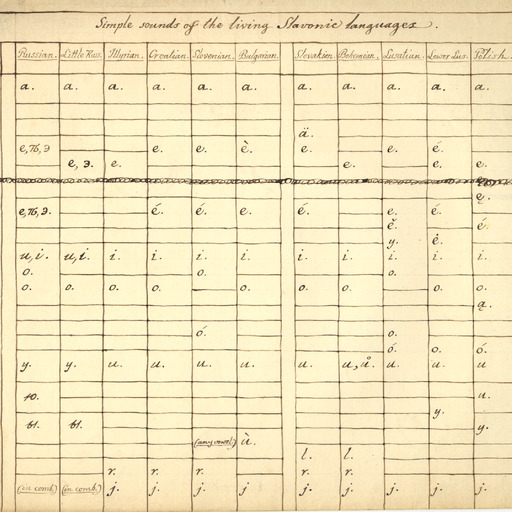 Simple sounds of the living Slavonic languages.
Russian. Little Rus. Illyrian. Croatian. Slovenian. Bulgarian. Slovakien. Bohemian. Lusatian. Lower Lus. Polish.
a. a. a. a. a. a. a. a. a. a. a.
ä.
e, ѣ, э e. e. è. e. e. é.
e, э. e. e. e. e.
ę.
e, ѣ, э. é. é. e. é. e. é. é.
ě.
y. ė.
и, i. и, i. i. i. i. i. i. i. i. i. i.
o. o. o.
o. o. o. o. o. o. o. o. o. o.
ą.
ó. o.
ó. o. ó.
y. y. u. u. u. u. u. u, ů. u. u. u
ю. u.
y.
ы. ы. y.
(any vowel) ù.
l. l.
r. r. r. r. r.
(in comb.) (in comb.) j. j. j. j j. j. j. j. j.